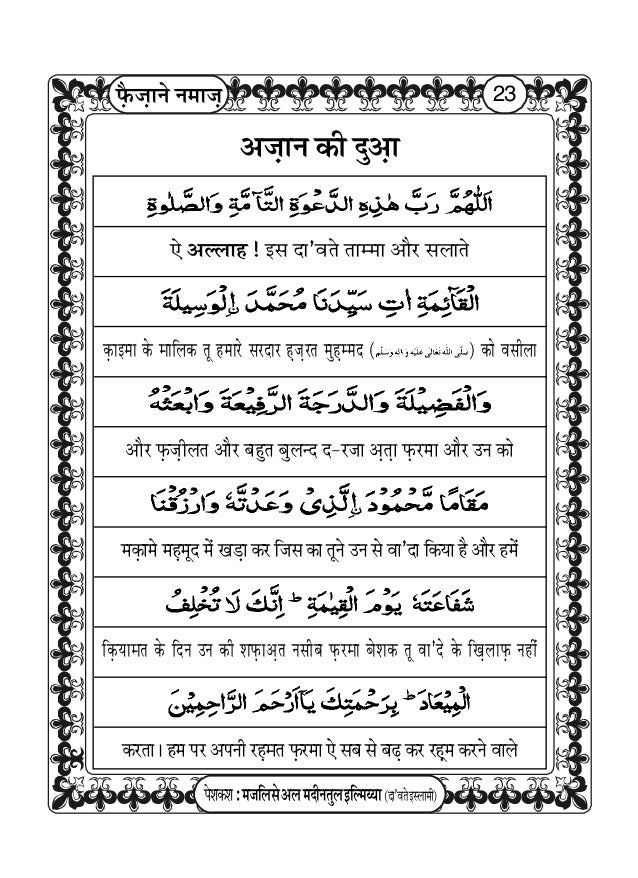 फ़ैज़ाने नमाज़
23
अज़ान की दुआ़
اَللّٰهُمَّ رَبَّ هٰذِهِ الدَّعْوَةِ التَّآمَّةِ وَالصَّلٰوةِ
ऐ अल्लाह ! इस दा'वते ताम्मा और सलाते
الْقَآئِمَةِ اٰتِ سَيِّدَنَا مُحَمَّدَ اِۨلْوَسِيْلَةَ
क़ाइमा के मालिक तू हमारे सरदार हज़रत मुह़म्मद (صَلَّى اللّٰهُ تَعَالٰى عَلَيْهِ وَاٰلِهٖ وَسَلَّم) को वसीला
وَالْفَضِيْلَةَ وَالدَّرَجَةَ الرَّفِيْعَةَ وَابْعَثْهُ
और फ़ज़ीलत और बहुत बुलन्द द-रजा अ़त़ा फ़रमा और उन को
مَقَامًا مَّحْمُوْدَ اِۨلَّذِىْ وَعَدْتَّهٗ وَارْزُقْنَا
मक़ामे मह़मूद में खड़ा कर जिस का तूने उन से वा'दा किया है और हमें
شَفَاعَتَهٗ يَوْمَ الْقِيٰمَةِ ؕ اِنَّكَ لَا تُخْلِفُ
क़ियामत के दिन उन की शफ़ाअ़त नसीब फ़रमा बेशक तू वा'दे के ख़िलाफ़ नहीं
الْمِيْعَادَ ؕ بِرَحْمَتِكَ يَآ اَرْحَمَ الرَّاحِمِيْنَ
करता। हम पर अपनी रह़मत फ़रमा ऐ सब से बढ़ कर रह़्म करने वाले
पेशकश : मजलिसे अल मदीनतुल इल्मिय्या (दा'वते इस्लामी)